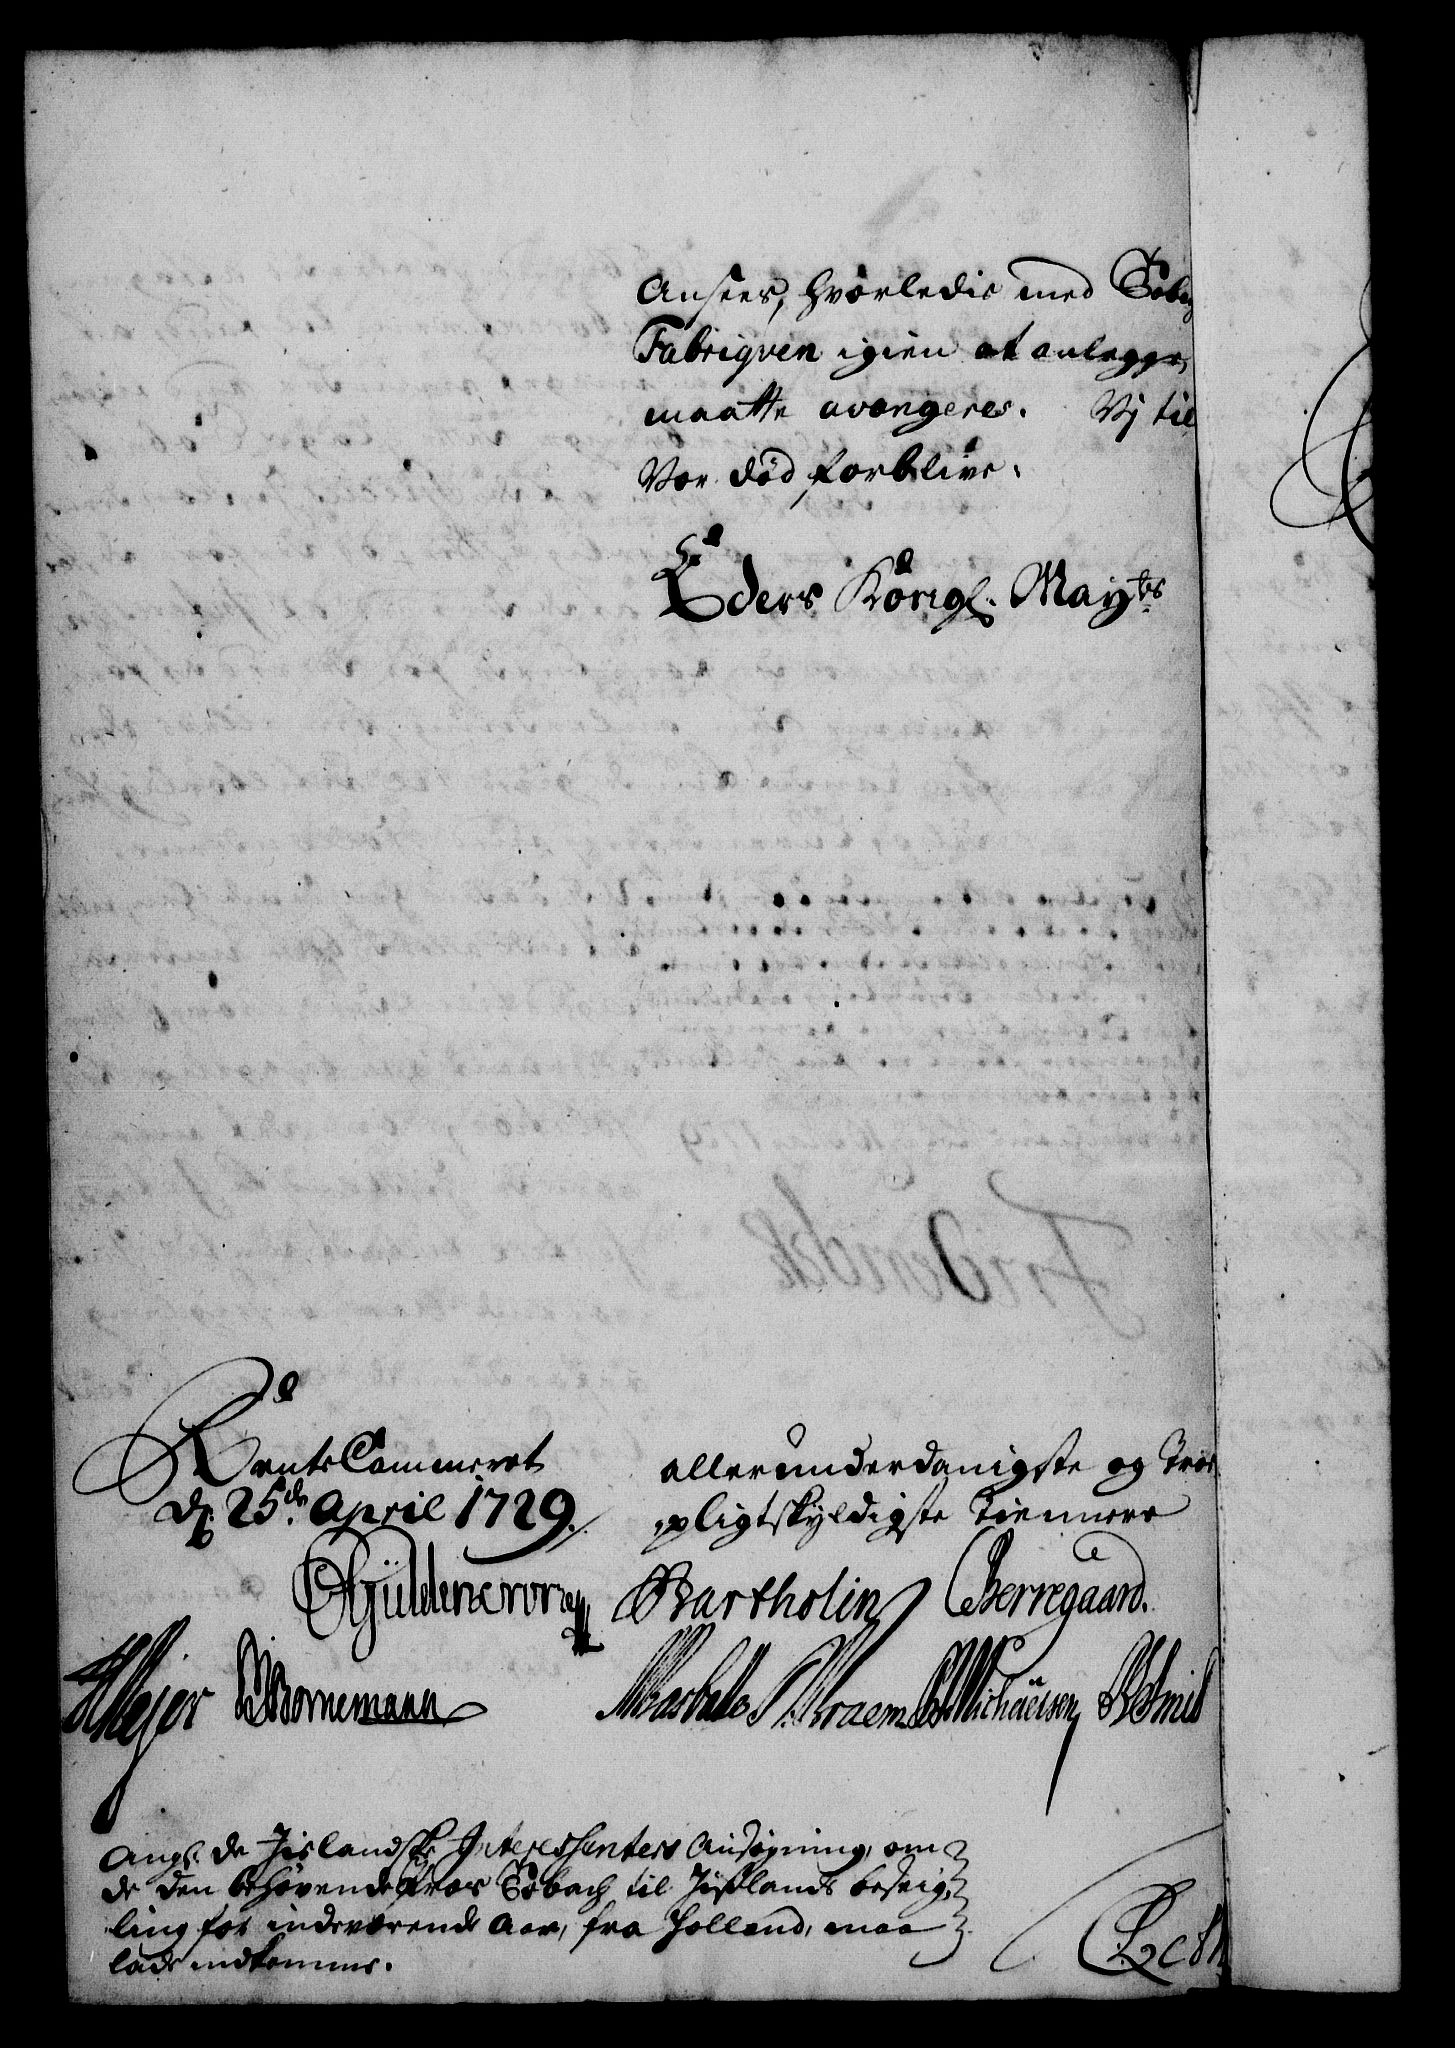 Ansees, hvorledis med Tobaks
Fabriqven igien at anlegge,
maatte avangeres. Vj til
Vor Død forblive.
Eders Königl. May.ts
RenteCammeret
d. 25de April 1729.
allerunderdanigste og Troe
pligtskyldigste Tiennere
CGüldencrone Bartholin Berregaard.
Mejer Bornemann Kraem Michaelsen
Ang. de Jislandske Interessenters Ansøgning, om
de den behøvende Tobach til Jislands beseig-
ling for indeværende Aar, fra Holland, maa
lade indkomme.